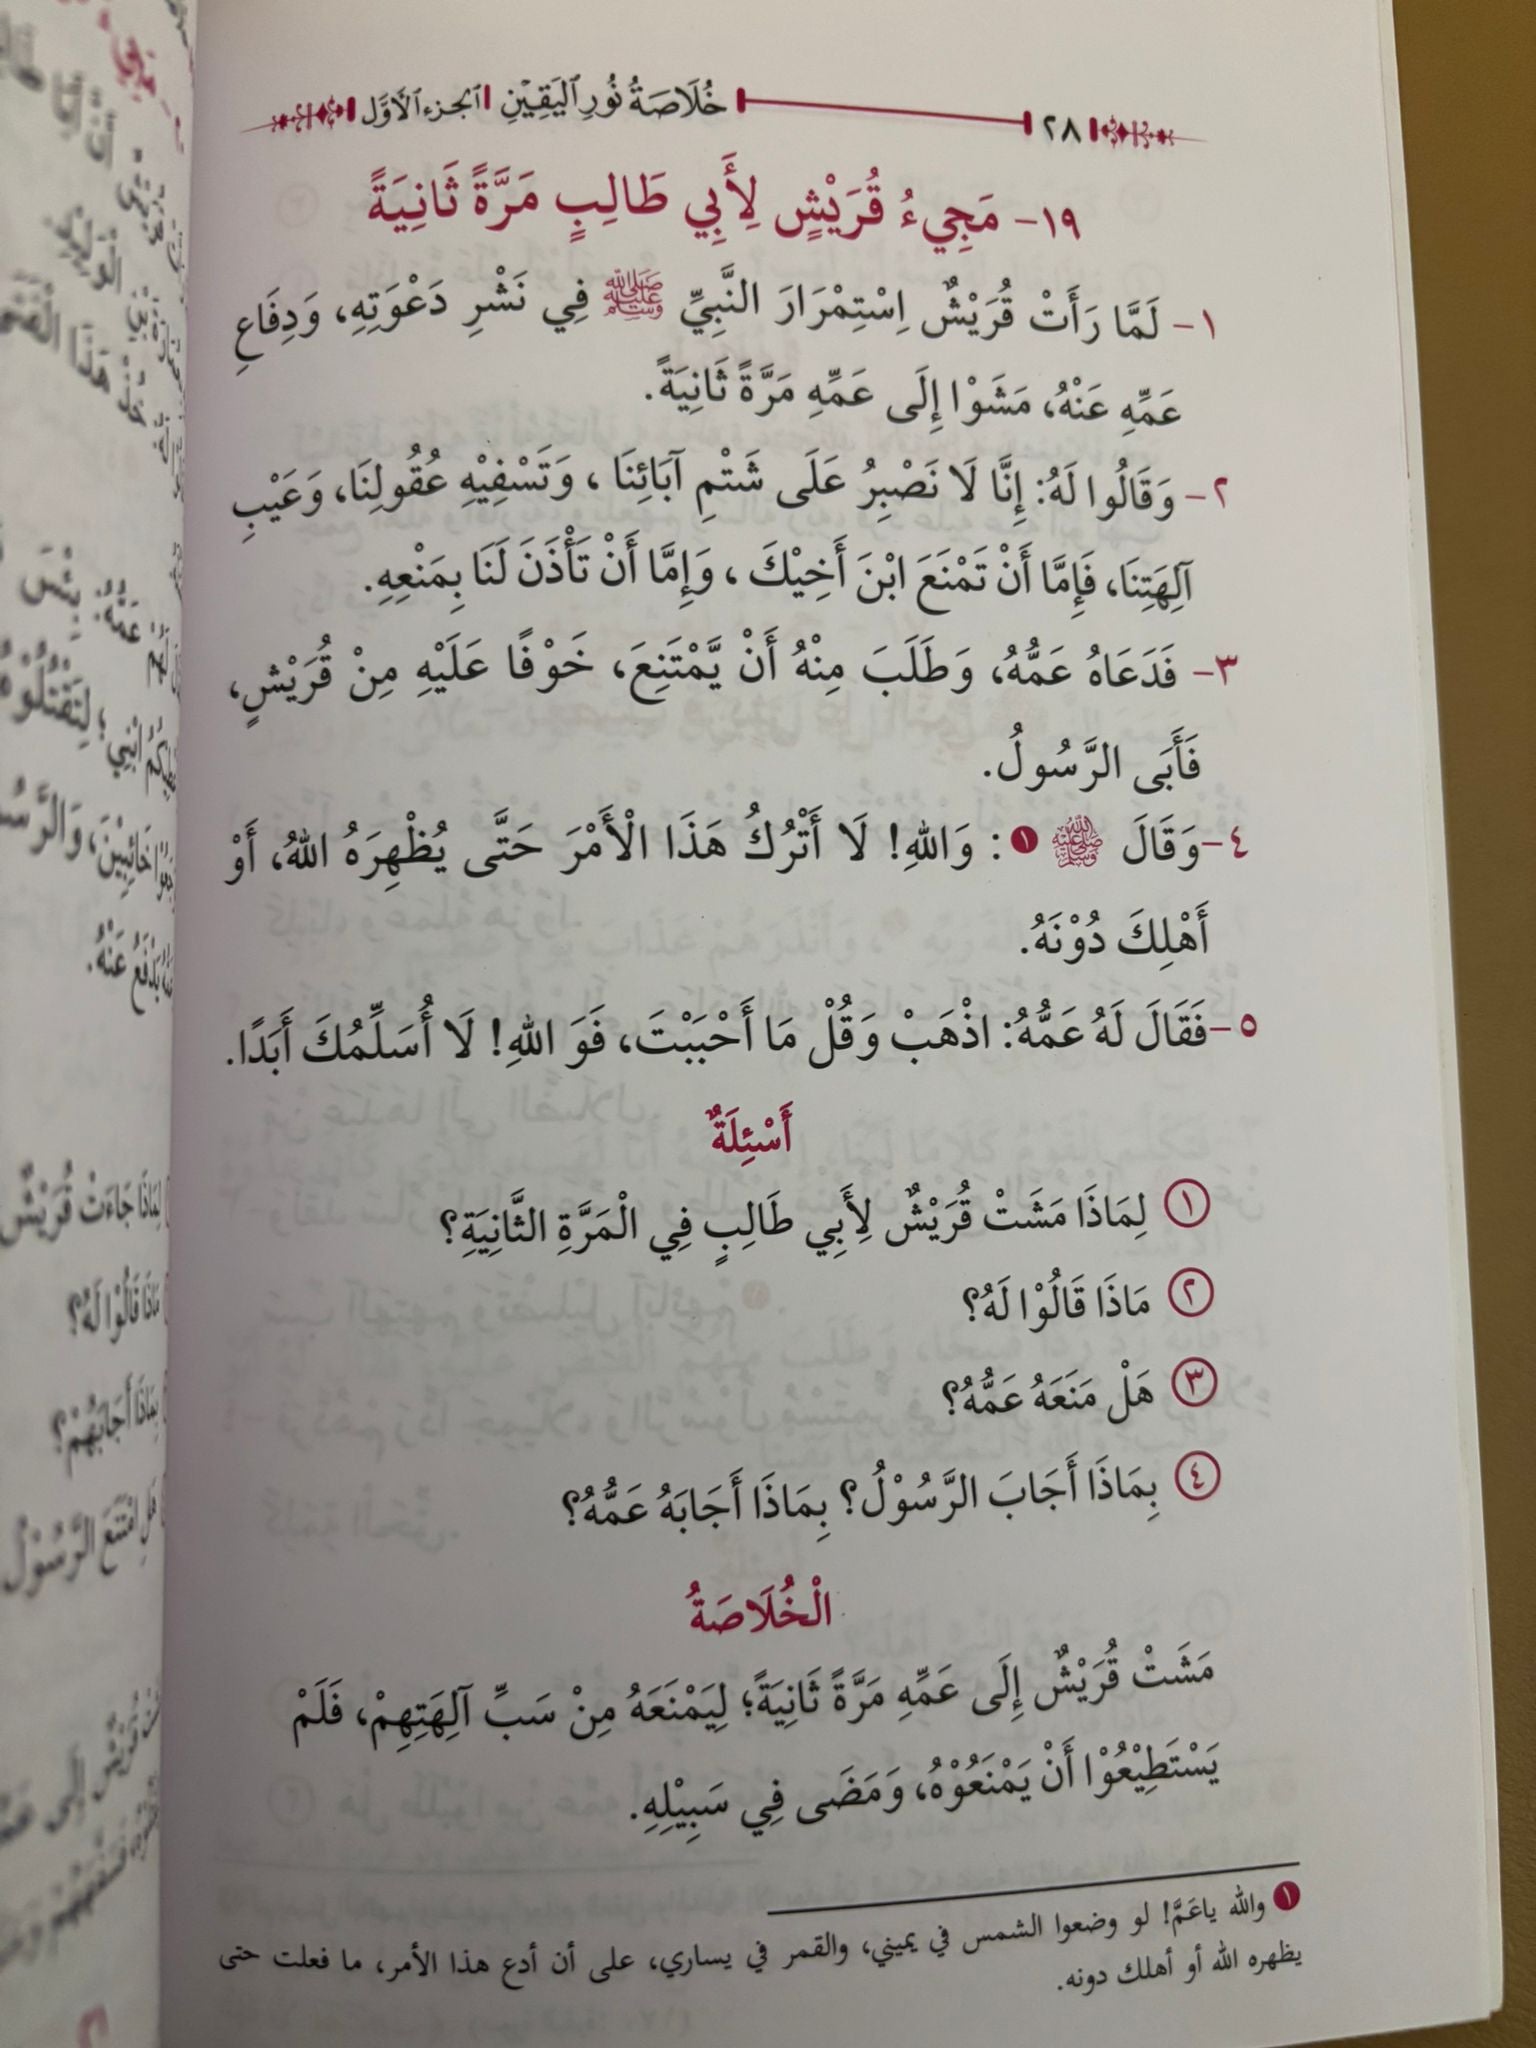 ٢٨ خُلَاصَةُ نُورِ الْيَقِيْنِ الجزء الأوّل
١٩- مَجِيءُ قُرَيْشٍ لِأَبِي طَالِبٍ مَرَّةً ثَانِيَةً
١- لَمَّا رَأَتْ قُرَيْشٌ اِسْتِمْرَارَ النَّبِيِّ ﷺ فِي نَشْرِ دَعْوَتِهِ، وَدِفَاعِ
عَمِّهِ عَنْهُ، مَشَوْا إِلَى عَمِّهِ مَرَّةً ثَانِيَةً.
٢- وَقَالُوا لَهُ: إِنَّا لَا نَصْبِرُ عَلَى شَتْمِ آبَائِنَا، وَتَسْفِيْهِ عُقُولِنَا، وَعَيْبِ
آلِهَتِنَا، فَإِمَّا أَنْ تَمْنَعَ ابْنَ أَخِيْكَ، وَإِمَّا أَنْ تَأْذَنَ لَنَا بِمَنْعِهِ.
٣- فَدَعَاهُ عَمُّهُ، وَطَلَبَ مِنْهُ أَنْ يَّمْتَنِعَ، خَوْفًا عَلَيْهِ مِنْ قُرَيْشٍ،
فَأَبَى الرَّسُولُ.
٤- وَقَالَ ﷺ ❶: وَاللهِ! لَا أَتْرُكُ هَذَا الْأَمْرَ حَتَّى يُظْهِرَهُ اللهُ، أَوْ
أَهْلِكَ دُوْنَهُ.
٥- فَقَالَ لَهُ عَمُّهُ: اذْهَبْ وَقُلْ مَا أَحْبَبْتَ، فَوَ اللهِ! لَا أُسَلِّمُكَ أَبَدًا.
أَسْئِلَةٌ
① لِمَاذَا مَشَتْ قُرَيْشٌ لِأَبِي طَالِبٍ فِي الْمَرَّةِ الثَّانِيَةِ؟
② مَاذَا قَالُوْا لَهُ؟
③ هَلْ مَنَعَهُ عَمُّهُ؟
④ بِمَاذَا أَجَابَ الرَّسُوْلُ؟ بِمَاذَا أَجَابَهُ عَمُّهُ؟
الْخُلَاصَةُ
مَشَتْ قُرَيْشٌ إِلَى عَمِّهِ مَرَّةً ثَانِيَةً؛ لِيَمْنَعَهُ مِنْ سَبِّ آلِهَتِهِمْ، فَلَمْ
يَسْتَطِيْعُوْا أَنْ يَمْنَعُوْهُ، وَمَضَى فِي سَبِيْلِهِ.
❶ والله ياعَمَّ! لو وضعوا الشمس في يميني، والقمر في يساري، على أن أدع هذا الأمر، ما فعلت حتى
يظهره الله أو أهلك دونه.